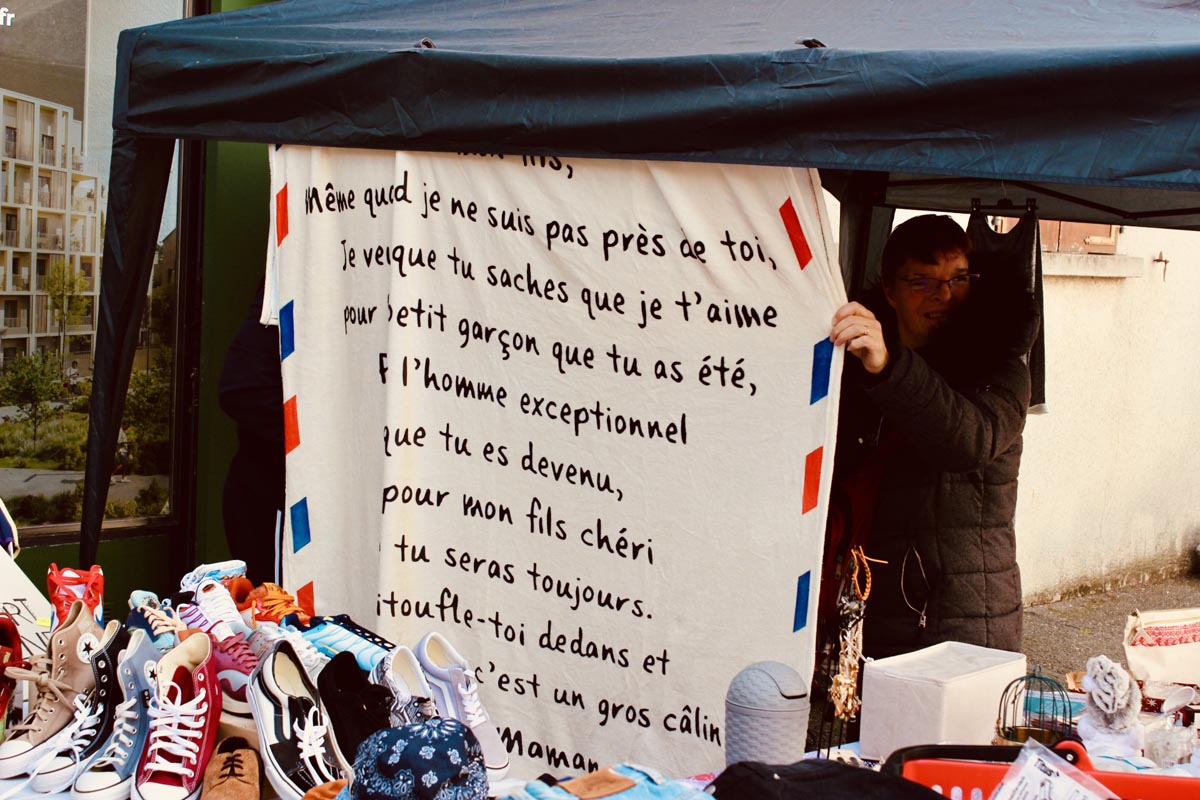 fr
mon fils,
même quand je ne suis pas près de toi,
Je que tu saches que je t'aime
pour petit garçon que tu as été,
l'homme exceptionnel
que tu es devenu,
pour mon fils chéri
tu seras toujours.
dedans et
c'est un gros câlin
Maman